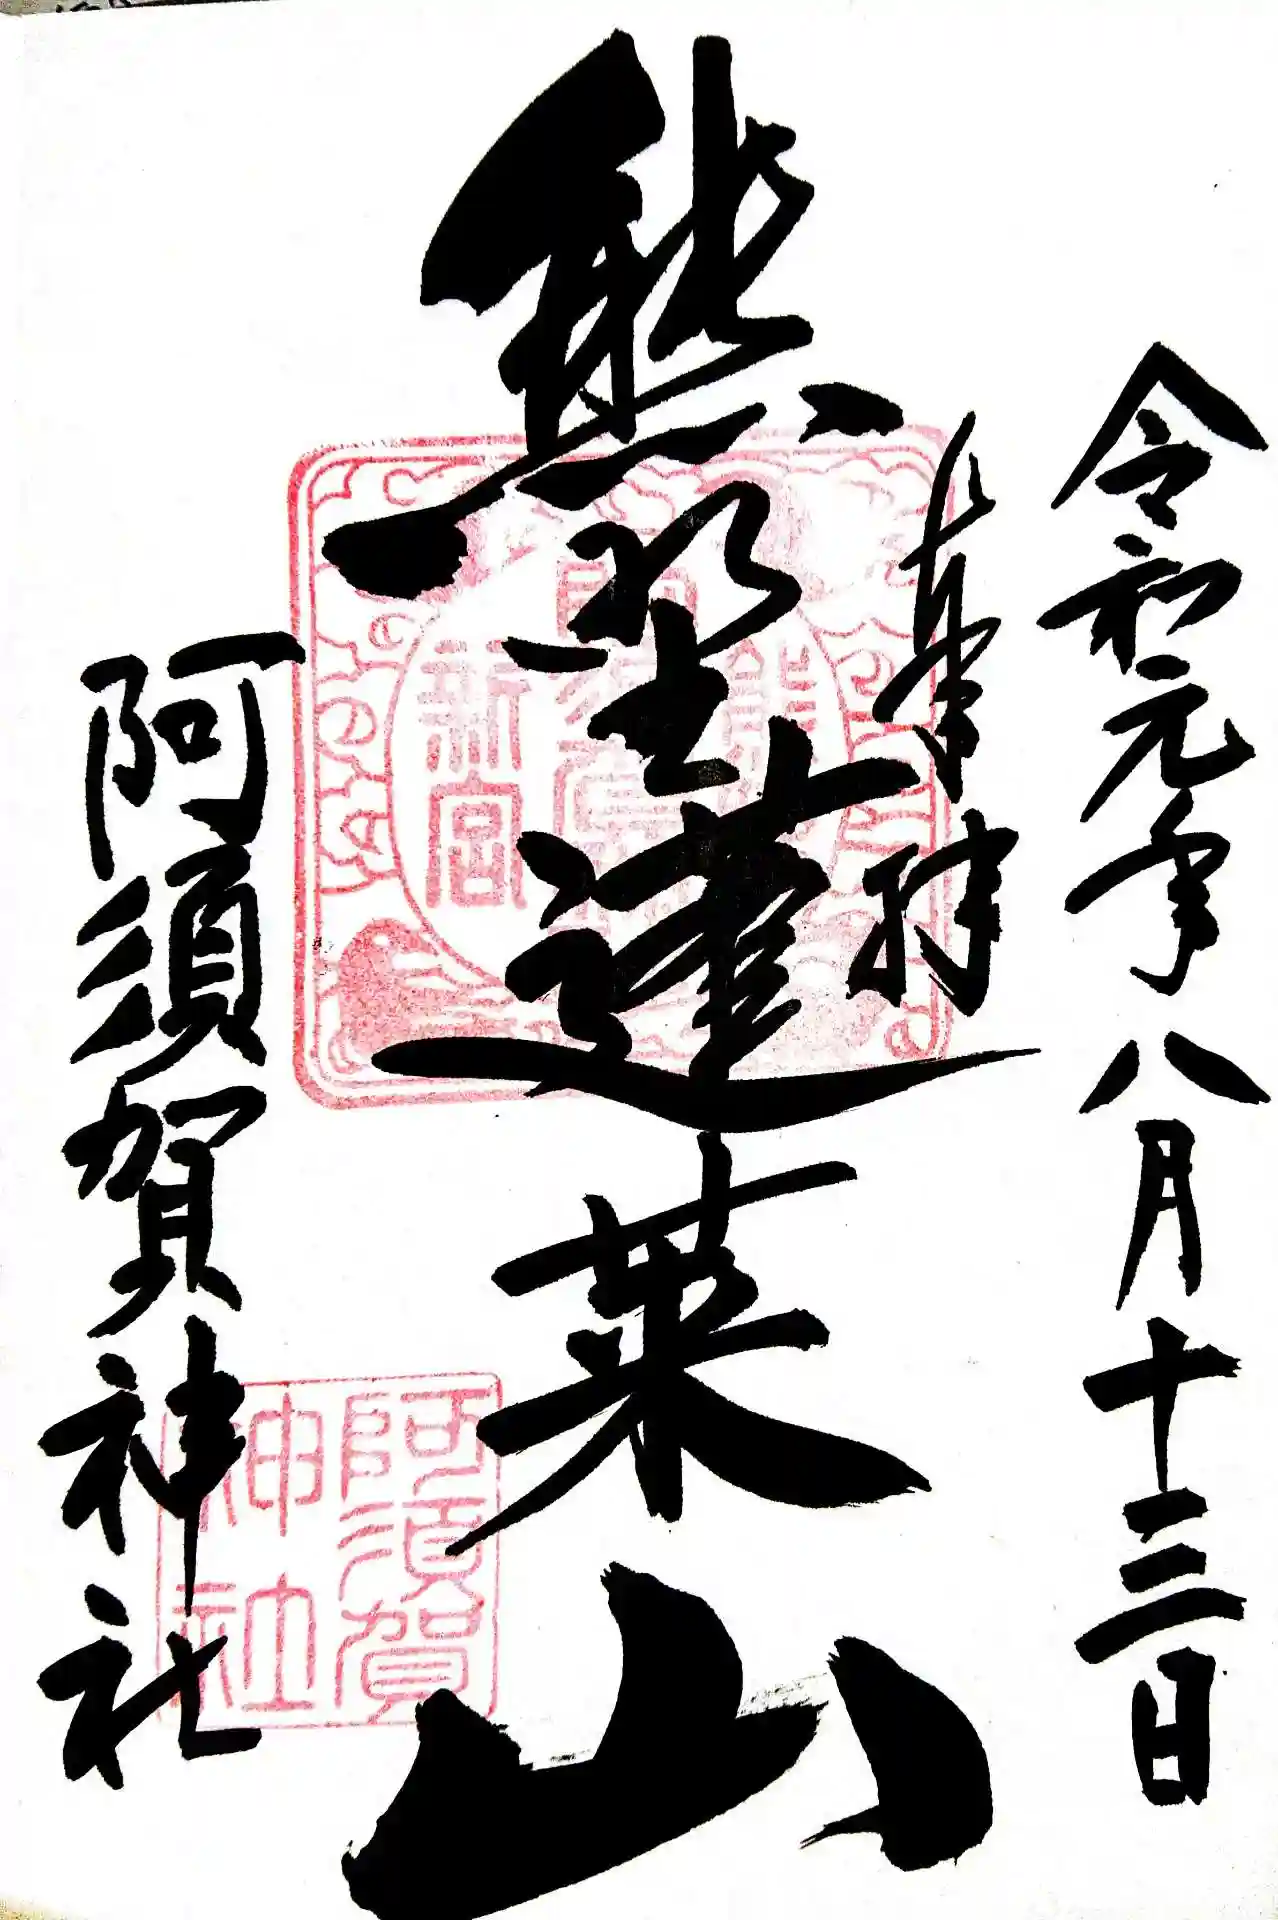 令和元年八月十三日
奉拝
熊埜蓬莱山
阿須賀神社
新宮
阿須賀
神社